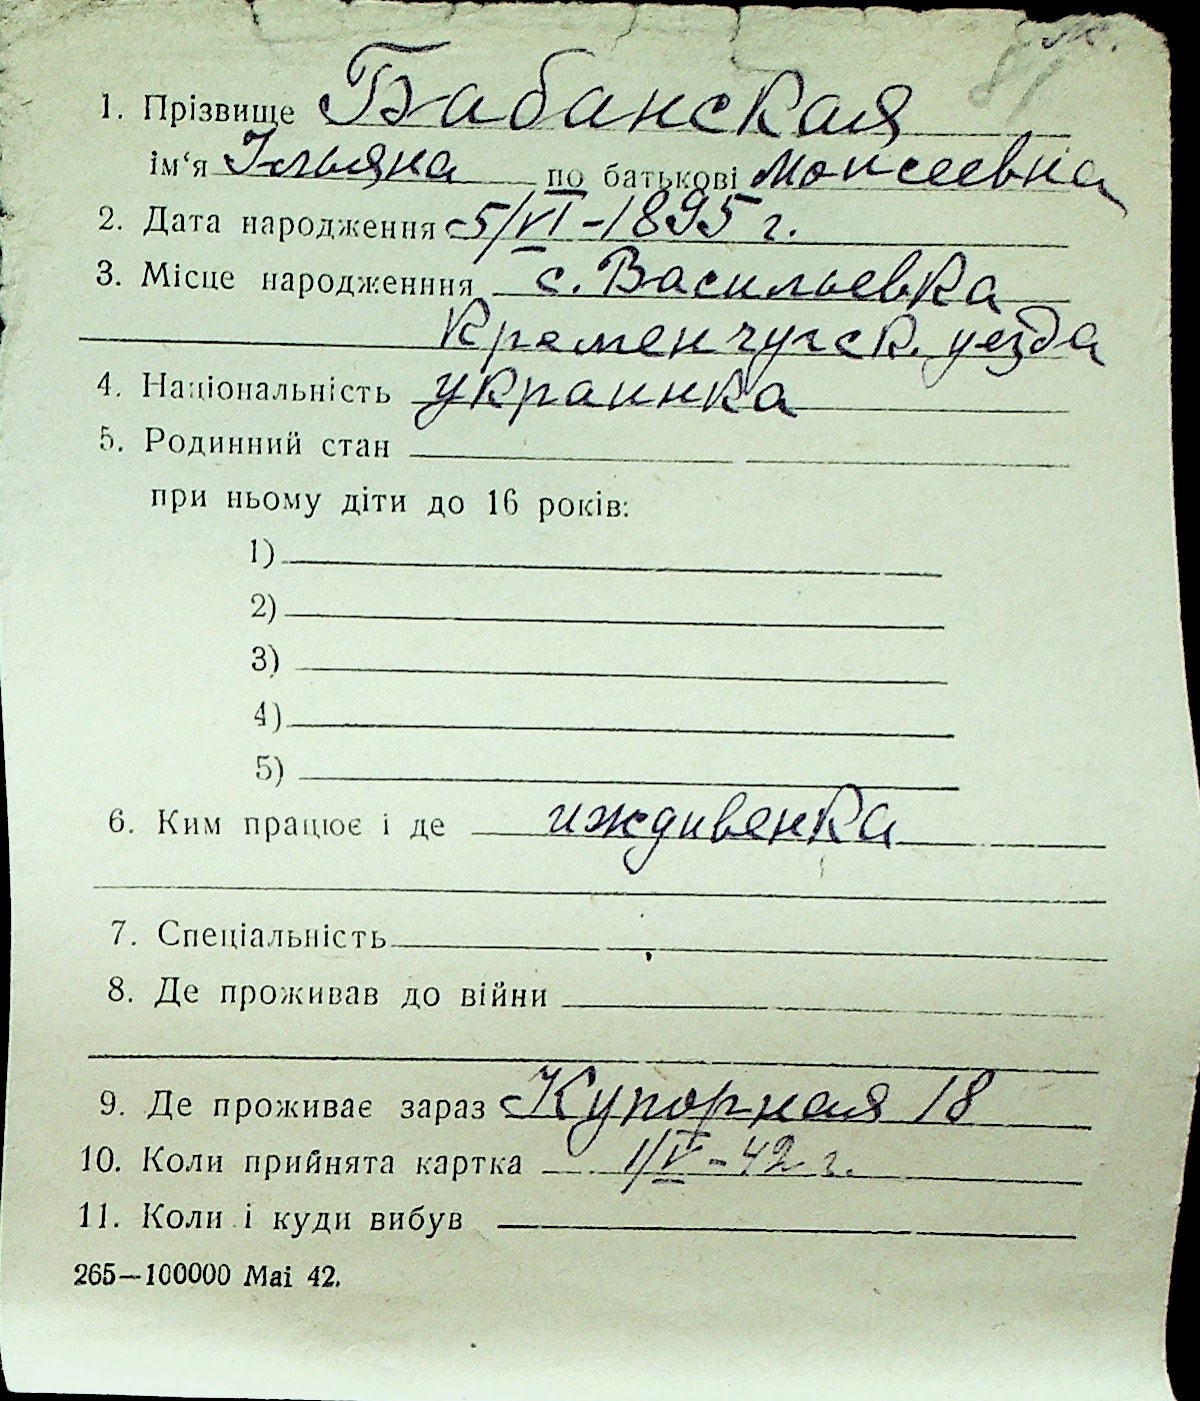 ж.
1. Прізвище Бабанская
ім‘я Ульяна по батькові Моисеевна
2. Дата народження 5/VI-1895 г.
3. Місце народженння с. Васильевка
Кременчугск. уезда
4. Національність украинка
5. Родинний стан
при ньому діти до 16 років:
1)
2)
3)
4)
5)
6. Ким працює і де иждивенка
7. Спеціальність
8. Де проживав до війни
9. Де проживає зараз Купорная 18
10. Коли прийнята картка 1/V-42 г.
11. Коли і куди вибув
265—100000 Mai 42.